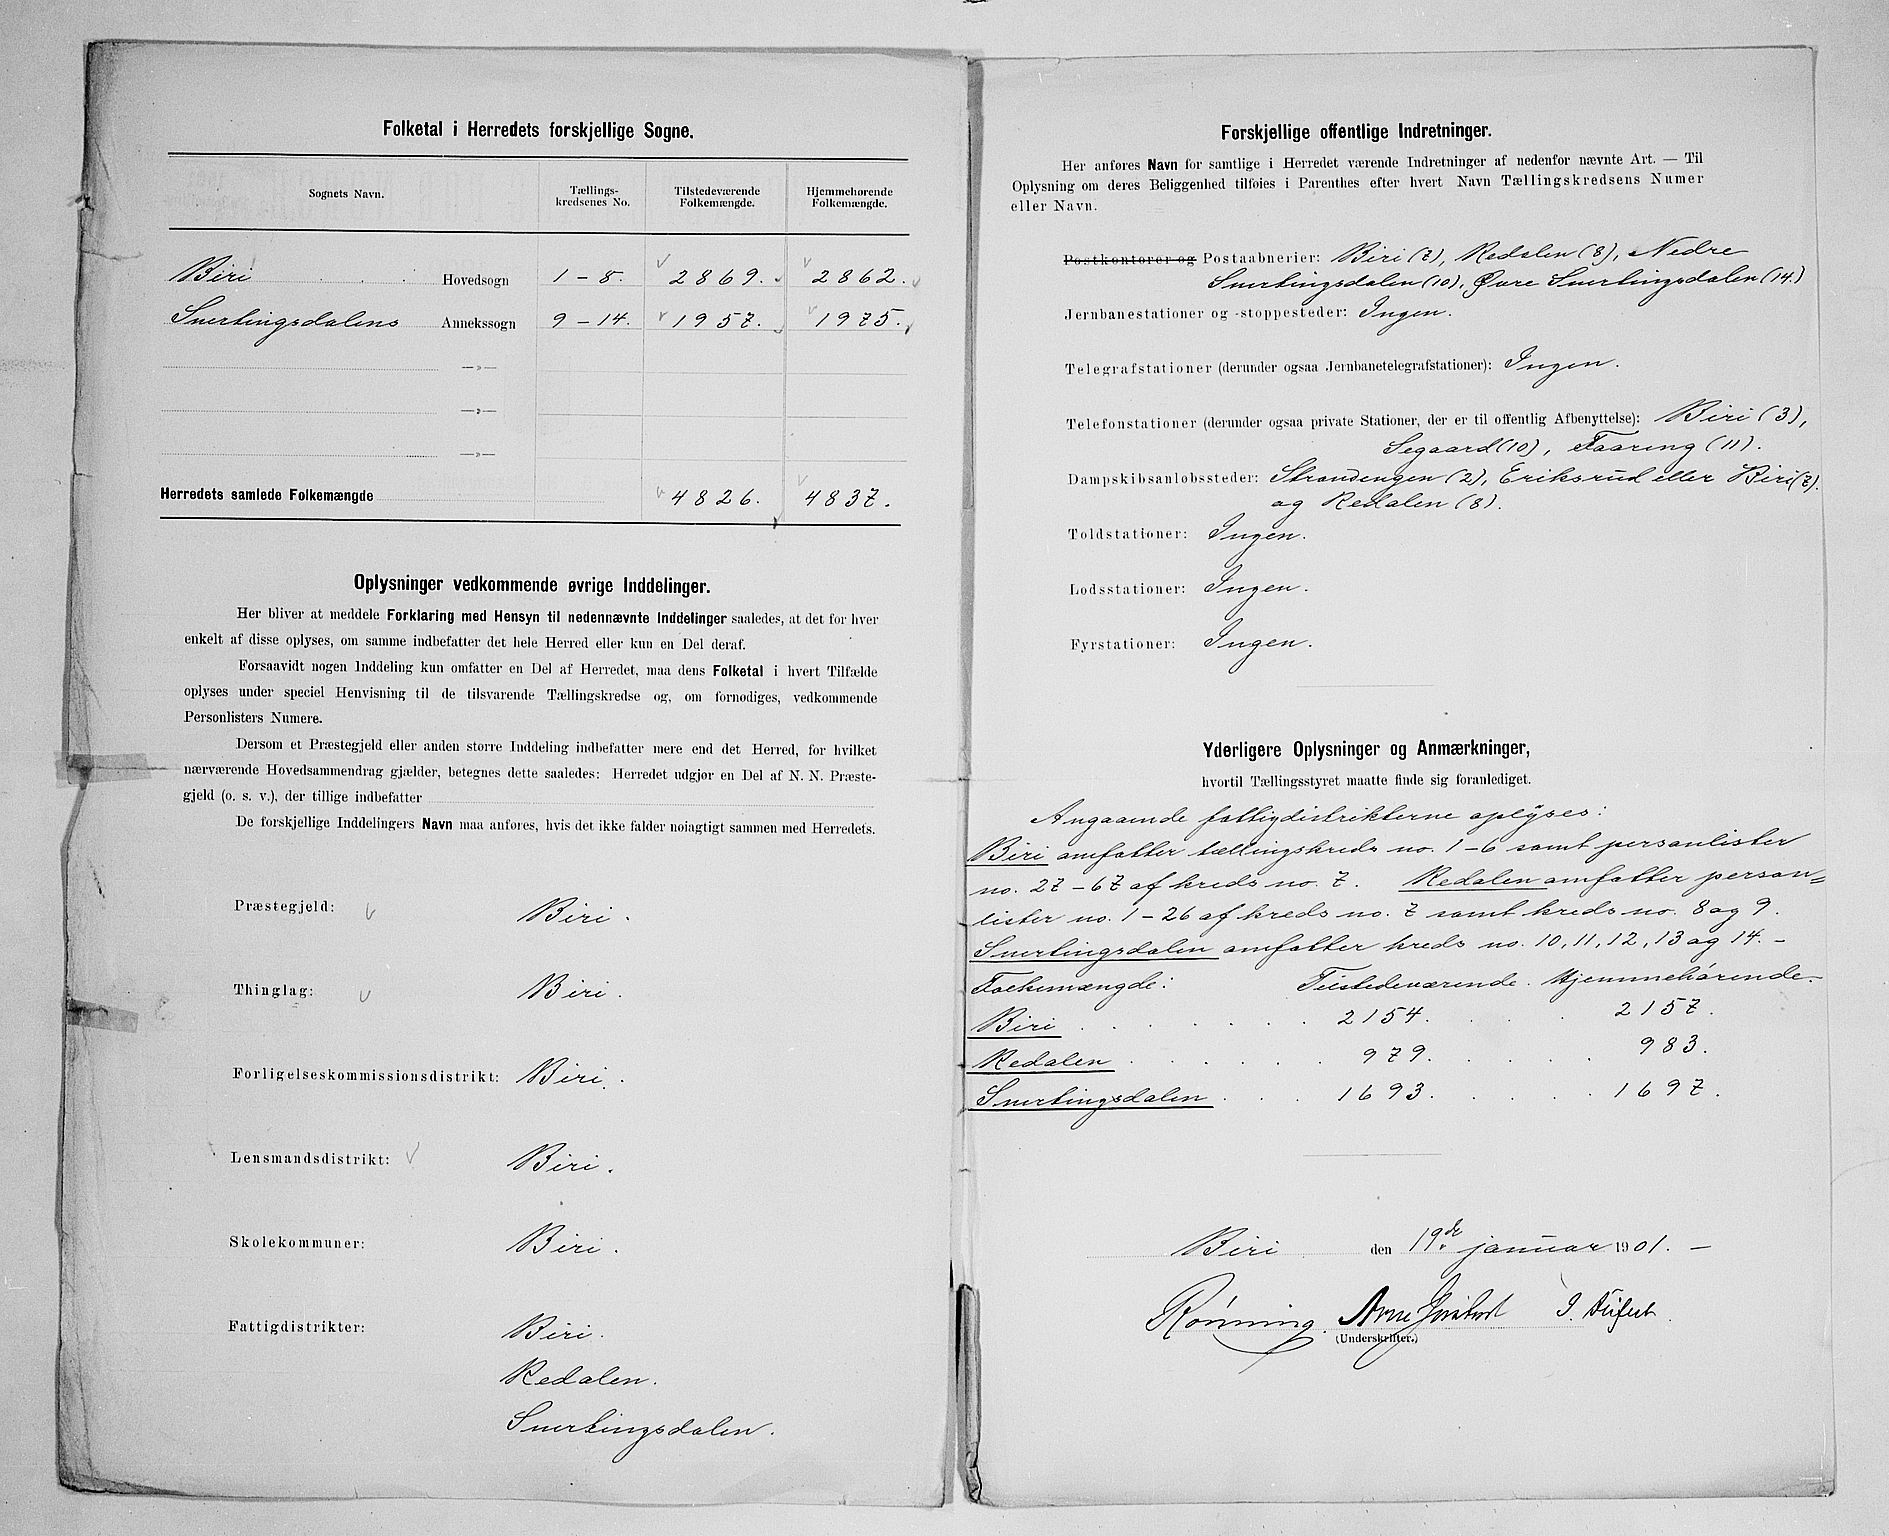 Folketal i Herredets forskjellige Sogne.
Sognets Navn. Tællings-kredsenes No. Tilstedeværende Folkemængde. Hjemmehørende Folkemængde.
Biri Hovedsogn 1-8. 2869. 2862.
Snertingsdalens Annekssogn 9-14. 1957. 1975.
—„—
—„—
—„—
Herredets samlede Folkemængde 4826. 4837.
Oplysninger vedkommende øvrige Inddelinger.
Her bliver at meddele Forklaring med Hensyn til nedennævnte Inddelinger saaledes, at det for hver
enkelt af disse oplyses, om samme indbefatter det hele Herred eller kun en Del deraf.
Forsaavidt nogen Inddeling kun omfatter en Del af Herredet, maa dens Folketal i hvert Tilfælde
oplyses under speciel Henvisning til de tilsvarende Tællingskredse og, om fornødiges, vedkommende
Personlisters Numere.
Dersom et Præstegjeld eller anden større Inddeling indbefatter mere end det Herred, for hvilket
nærværende Hovedsammendrag gjælder, betegnes dette saaledes: Herredet udgjør en Del af N. N. Præste-
gjeld (o. s. v.), der tillige indbefatter
De forskjellige Inddelingers Navn maa anføres, hvis det ikke falder nøiagtigt sammen med Herredets.
Præstegjeld: Biri.
Thinglag: Biri.
Forligelseskommissionsdistrikt: Biri.
Lensmandsdistrikt: Biri.
Skolekommuner: Biri.
Fattigdistrikter: Biri.
Redalen.
Snertingsdalen.
Forskjellige offentlige Indretninger.
Her anføres Navn for samtlige i Herredet værende Indretninger af nedenfor nævnte Art. — Til
Oplysning om deres Beliggenhed tilføies i Parenthes efter hvert Navn Tællingskredsens Numer
eller Navn.
Postkontorer og Postaabnerier: Biri (7), Redalen (8), Nedre
Snertingsdalen (10), Øvre Snertingsdalen (14.)
Jernbanestationer og -stoppesteder: Ingen.
Telegrafstationer (derunder ogsaa Jernbanetelegrafstationer): Ingen.
Telefonstationer (derunder ogsaa private Stationer, der er til offentlig Afbenyttelse): Biri (3),
Segaard (10), Faaring (11).
Dampskibsanløbssteder: Strandengen (2), Eriksrud eller Biri (7).
og Redalen (8).
Toldstationer: Ingen.
Lodsstationer: Ingen.
Fyrstationer: Ingen.
Yderligere Oplysninger og Anmærkninger,
hvortil Tællingsstyret maatte finde sig foranlediget.
Angaaende fattigdistrikterne oplyses:
Biri omfatter tællingskreds no. 1-6 samt personlister
no. 27-67 af kreds no. 7. Redalen omfatter person=
lister no. 1-26 af kreds no. 7 samt kreds no. 8 og 9.
Snertingsdalen omfatter kreds no. 10, 11, 12, 13 og 14. -
Folkemængde: Tilstedeværende. Hjemmehørende.
Biri . . . . . 2154. . . . 2157.
Redalen . . . . . 979. . . . 983.
Snertingsdalen . . . 1693. . . . 1697.
Biri den 19de januar 1901. -
Rønning. Arne
(Underskrifter.)